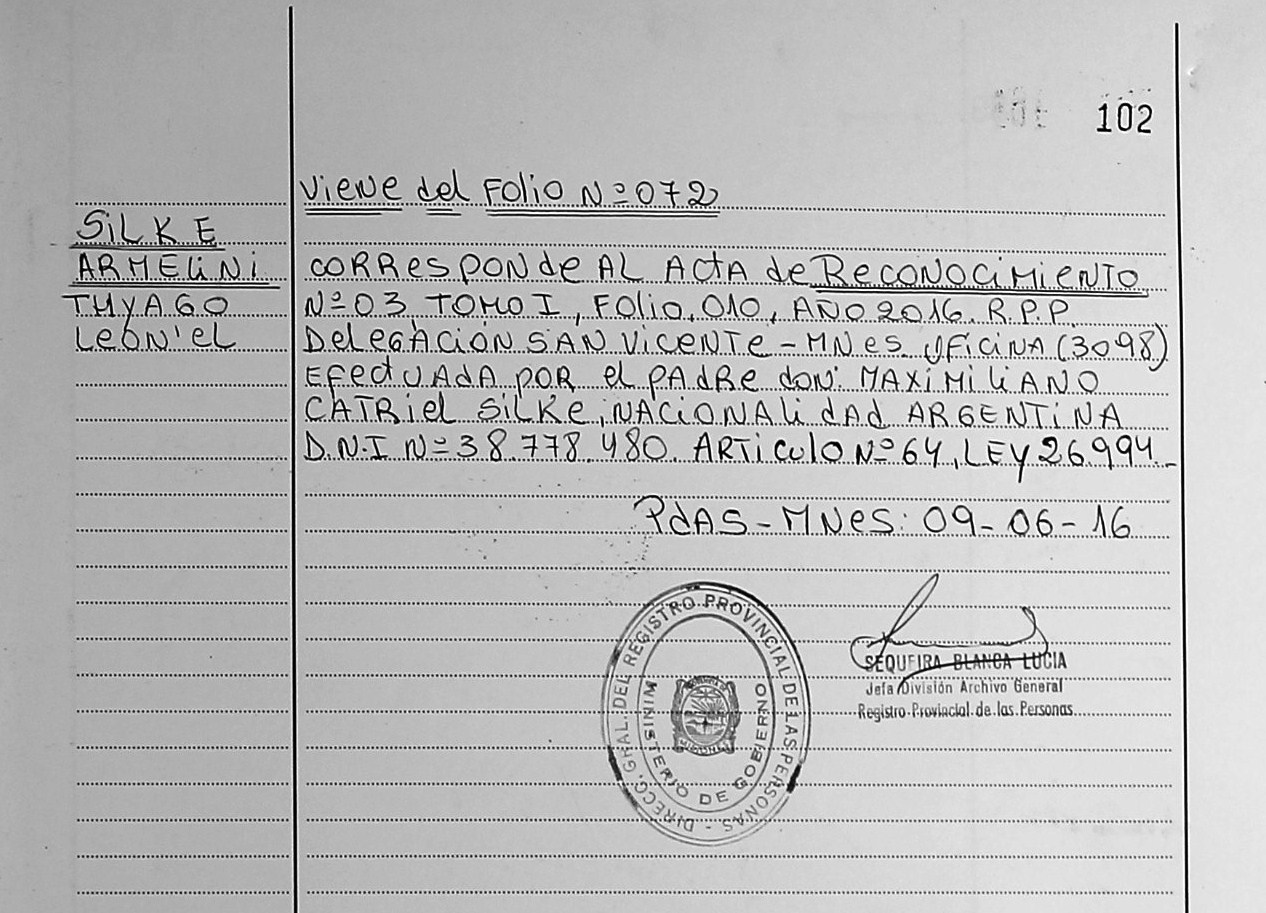 102
Viene del Folio Nº 072
SILKE
ARMELINI
THYAGO
LEON'EL
CORRESPONDE AL ACTA de RECONOCIMIENTO
Nº 03 TOMO I, FOLIO 010, AÑO 2016. R.P.P.
DELEGACIÓN SAN VICENTE - MNES. OFICINA (3098)
EFECTUADA POR el PADRE DON: MAXIMILIANO
CATRIEL SILKE, NACIONALIDAD ARGENTINA
D.N.I Nº 38.778.480. ARTICULO Nº 64, LEY 26.994.-
PdAS - MNES: 09-06-16
DIRECC. GRAL. DEL REGISTRO PROVINCIAL DE LAS PERSONAS -
MINISTERIO DE GOBIERNO
MISIONES
SEQUEIRA BLANCA LUCIA
Jefa División Archivo General
Registro Provincial de las Personas